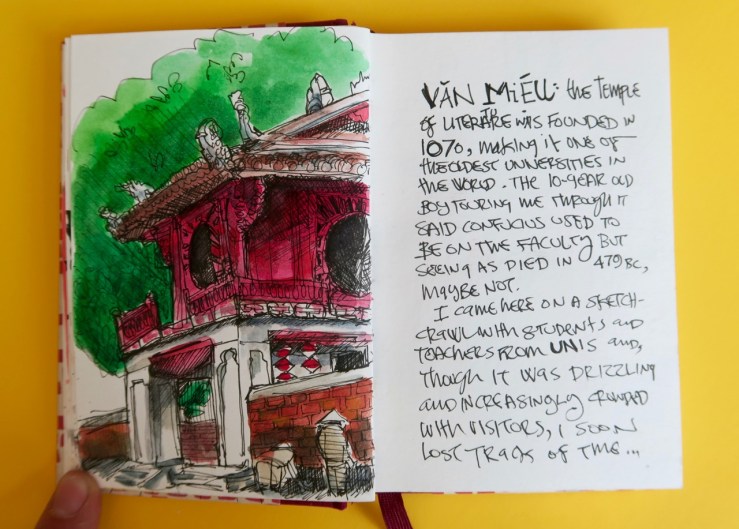 VĂN MIẾU: the TEMPLE
of LITERATURE WAS FOUNDED IN
1070, making it ONE OF
THE OLDEST UNIVERSITIES IN
the WORLD. THE 10-YEAR OLD
BOY TOURING ME THROUGH IT
SAID CONFUCIUS USED TO
BE ON THE FACULTY BUT
SEEING AS DIED IN 479 BC,
MAYBE NOT.
I CAME HERE ON A SKETCH-
CRAWL WITH STUDENTS and
TEACHERS FROM UNIS and,
though IT WAS DRIZZLING
and INCREASINGLY CROWDED
WITH VISITORS, I SOON
LOST TRACK OF TIME...